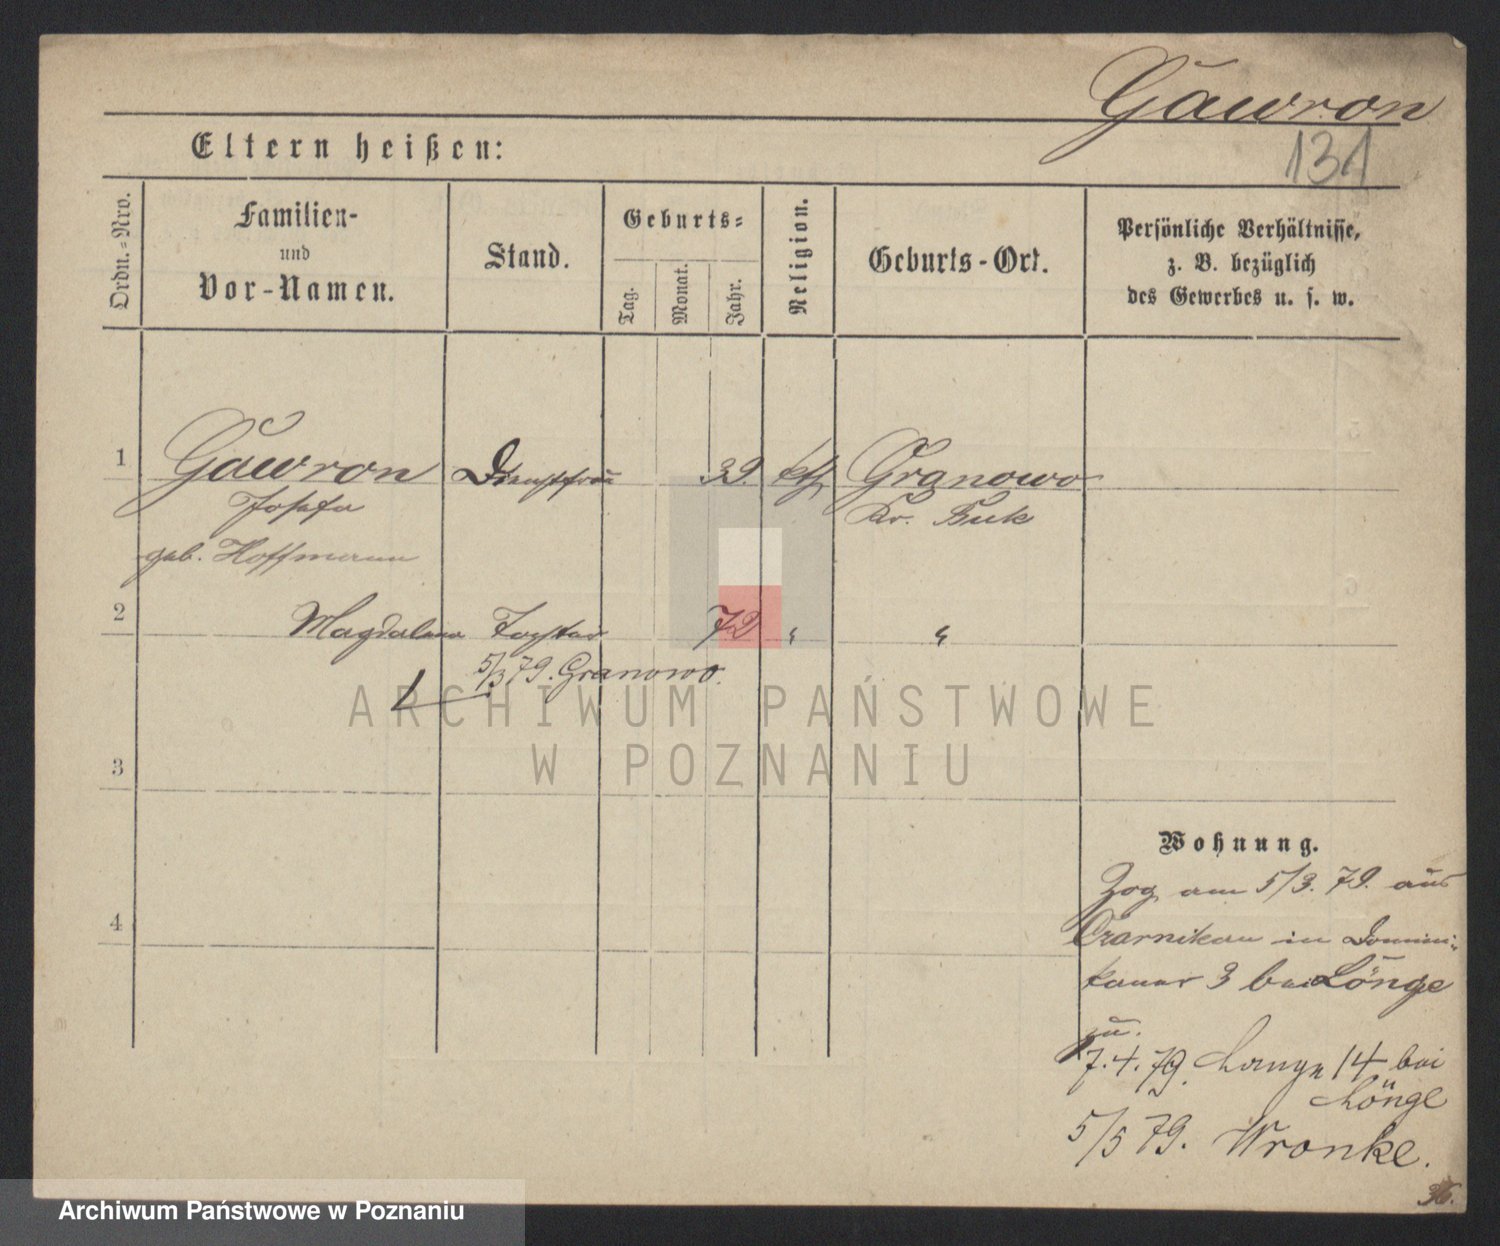 Gawron
131
Eltern heißen:
Ordn.=Nro.
Familien-
und
Vor-Namen.
Stand.
Geburts=
Tag.
Monat.
Jahr.
Religion.
Geburts-Ort.
Persönliche Verhältnisse,
z. B. bezüglich
des Gewerbes u. s. w.
1
Gawron
Josefa
geb. Hoffmann
Dienstfrau
39.
kth
Granowo
Kr. Buk
2
Magdalena
Tochter
72
"
"
5/3 79. Granowo.
3
4
ARCHIWUM PAŃSTWOWE
W POZNANIU
Wohnung.
Zog am 5/3. 79. aus
Czarnikau in Domini-
kaner 3 bei Lönge
zu.
7.4.79. Lange 14 bei
Lönge
5/5 79. Wronke.
36.
Archiwum Państwowe w Poznaniu